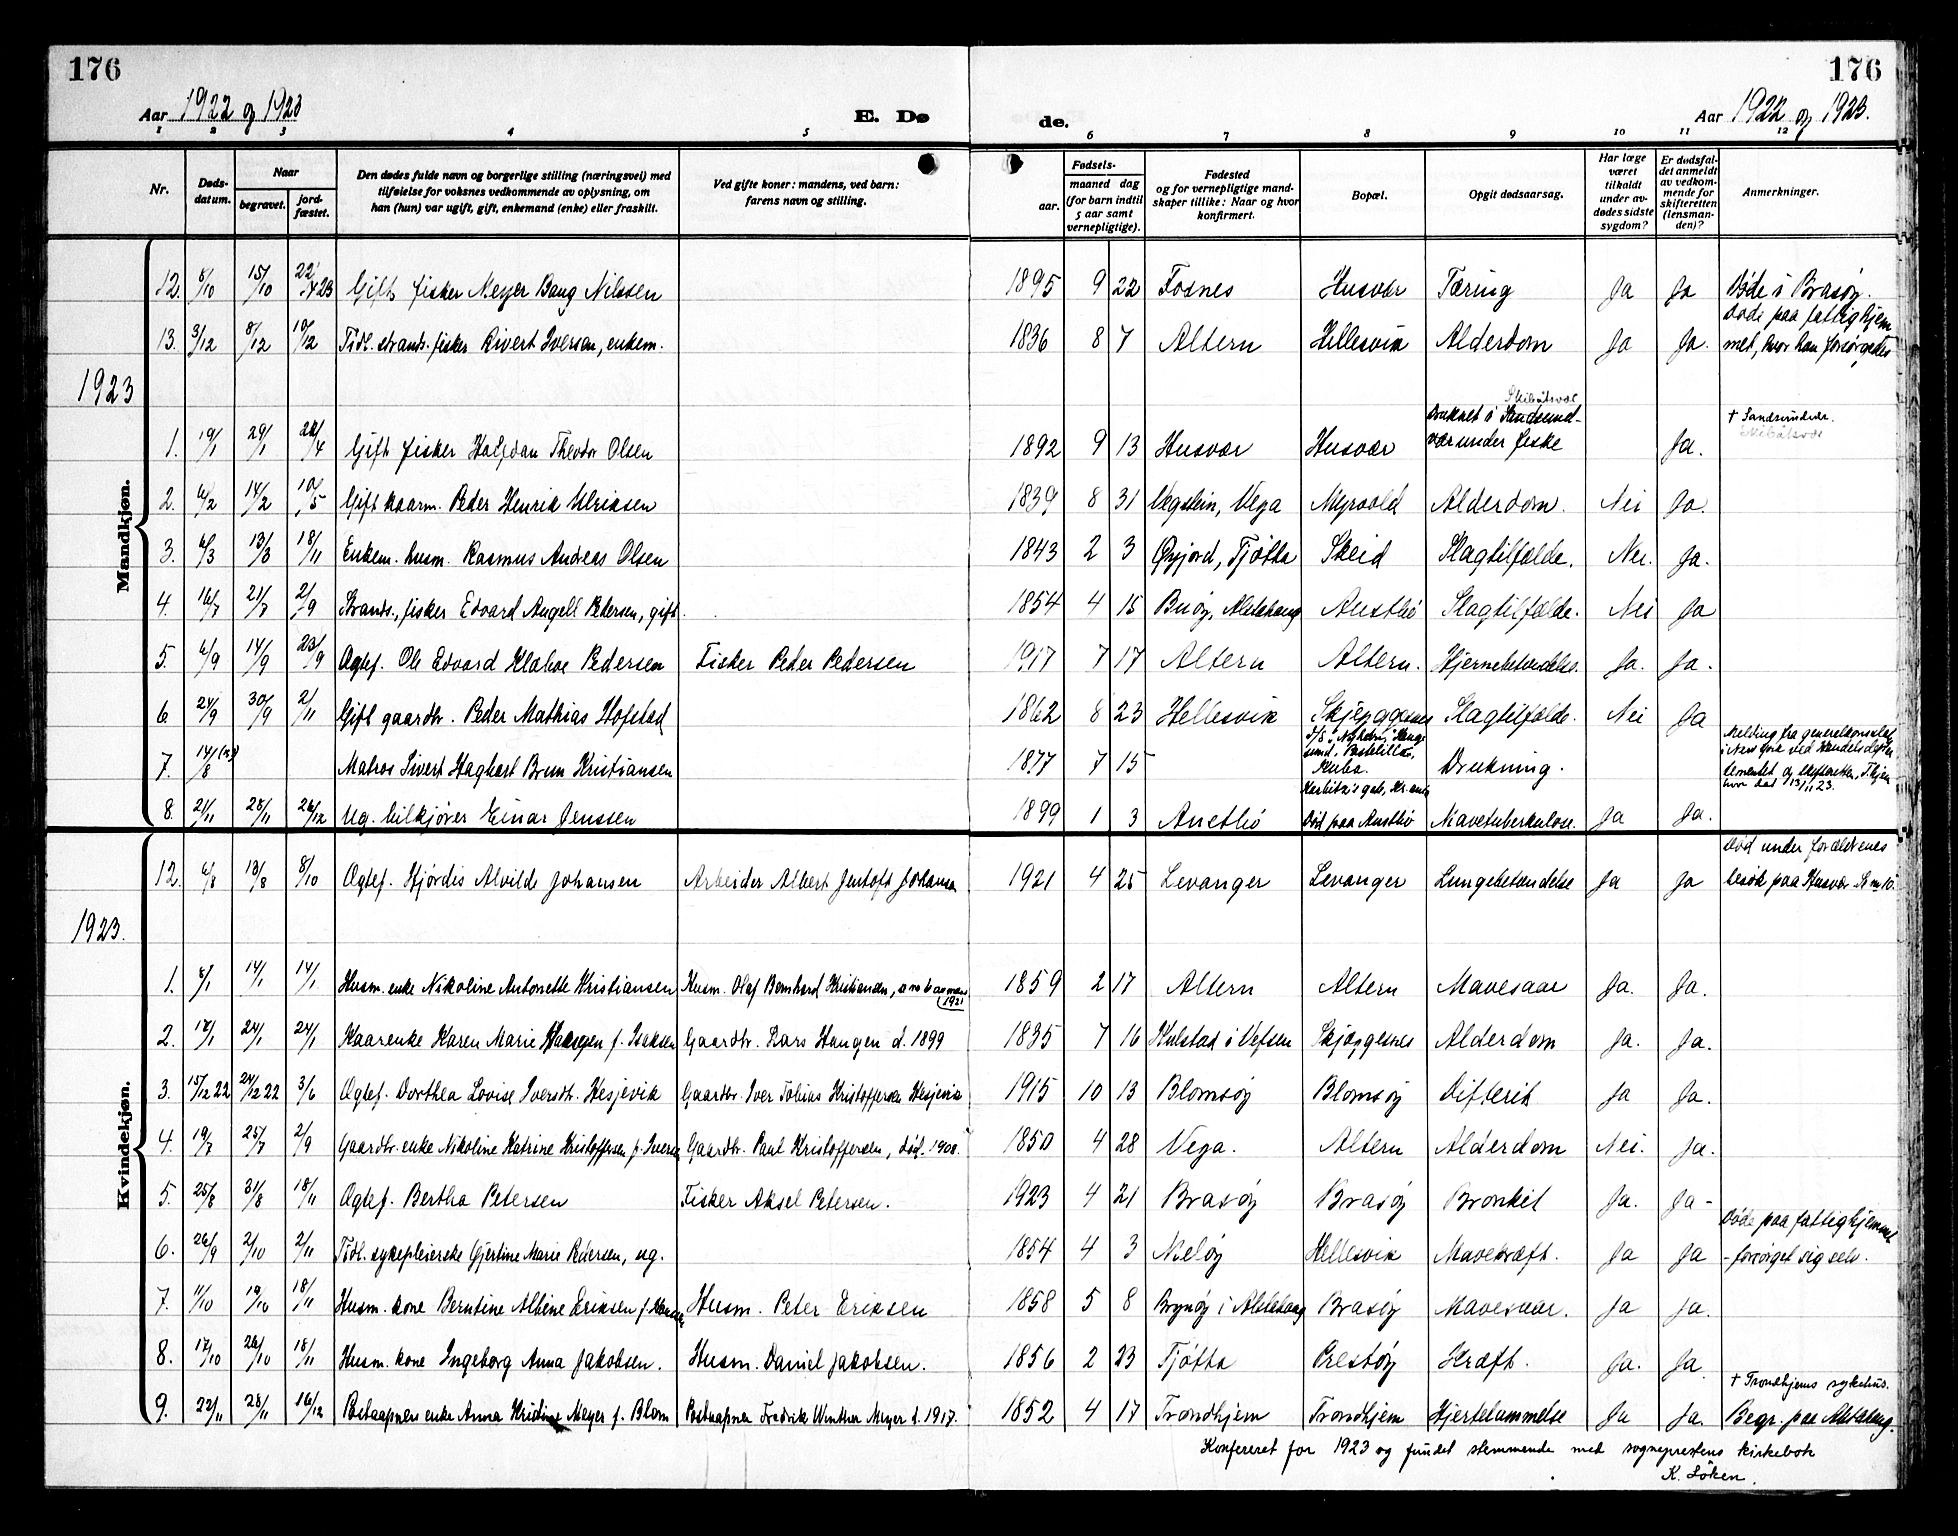 176
176
Aar 1922 og 1923
E. Dø
de.
Aar 1922 og 1923.
1 2 3 4 5 6 7 8 9 10 11 12
Nr.
Døds-
datum.
Naar
begravet.
jord-
fæstet.
Den dødes fulde navn og borgerlige stilling (næringsvei) med
tilføielse for voksnes vedkommende av oplysning, om
han (hun) var ugift, gift, enkemand (enke) eller fraskilt.
Ved gifte koner: mandens, ved barn:
farens navn og stilling.
Fødsels-
aar.
maaned dag
(for barn indtil
5 aar samt
vernepligtige).
Fødested
og for vernepligtige mand-
skaper tillike: Naar og hvor
konfirmert.
Bopæl.
Opgit dødsaarsag.
Har læge
været
tilkaldt
under av-
dødes sidste
sygdom?
Er dødsfal-
det anmeldt
av vedkom-
mende for
skifteretten
(lensman-
den)?
Anmerkninger.
Mandkjøn.
12. 8/10 15/10 22/4 23 Gift fisker Meyer Bang Nilssen 1895 9 22 Fosnes Husvær Tæring Ja Ja Døde i Brasøy.
13. 3/12 8/12 10/12 Tidl. strands. fisker Sivert Iversen, enkem. 1836 8 7 Altern Hellesvik Alderdom Ja Ja. Døde paa fattighjem
met, hvor han forsørgedes
1923
1. 19/1 29/1 22/4 Gift fisker Halfdan Theodor Olsen 1892 9 13 Husvær Husvær Druknet i Sandsund-
Skibåtsvær
vær under fiske Ja. † Sandsundvær.
Skibåtsvær
2. 6/2 14/2 10/5 Gift kaarm. Peder Henrik Ulriksen 1839 8 31 Vegstein, Vega Myrvold Alderdom. Nei Ja.
3. 6/3 13/3 18/11 Enkem. husm. Rasmus Andreas Olsen 1843 2 3 Øxfjord, Tjøtta Skeid Slagtilfælde. Nei. Ja.
4. 16/7 21/7 2/9 Strands., fisker Edvard Angell Petersen, gift. 1854 4 15 Buøy, Alstahaug Austbø Slagtilfælde. Nei Ja
5. 6/9 14/9 23/9 Ægtef. Ole Edvard Klaboe Pedersen Fisker Peder Pedersen 1917 7 17 Altern Altern. Hjernebetændelse. Ja. Ja.
6 24/9 30/9 2/11 Gift gaardbr. Peder Mathias Hofstad 1862 8 23 Hellesvik Skjeggesnes Slagtilfælde. Nei Ja
7. 14/8 Matros Sivert Haghart Brun Kristiansen 1877 7 15 Kuba. Drukning. Melding fra generalkonsulat
i New York ved Handelsdepar
tementet og skifteretten,
hvor dat 13/11 23.
8. 21/11 28/11 26/12 Ug. bilkjører Einar Jenssen 1899 1 3 Austbø Død paa Austbø Mavetuberkulose. Ja Ja.
Kvindekjøn.
12. 6/8 13/8 8/10 Ægtef. Hjørdis Alvilde Johansen Arbeider Albert Jentoft Johansen 1921 4 25 Levanger Levanger Lungebetændelse Ja Ja Død under forældrenes
besøk paa Husvær
1923.
1. 8/1 14/1 14/1 Husm. enke Nikoline Antonette Kristiansen Husm. Olaf Bernhard Kristiansen, 1921 1859 2 17 Altern Altern Mavesaar Ja. Ja.
2. 18/1 24/1 24/1 Kaarenke Karen Marie f. Isaksen Gaardbr. Lars Haugen d. 1899 1835 7 16 Kulstad i Vefsen Skjeggesnes Alderdom Ja. Ja.
3. 15/12 22 24/12 22 3/6 Ægtef. Dorthea Lovise Iversdtr. Hesjevik Gaardbr. Iver Tobias Kristoffersen Hesjevik 1915 10 13 Blomsøy Blomsøy Difterit Ja Ja.
4. 19/7 25/7 2/9 Gaardbr. enke Nikoline Katrine Kristoffersen f. Iversen Gaardbr. Paul Kristoffersen, død. 1900. 1850 4 28 Vega. Altern Alderdom Nei. Ja.
5. 25/8 31/8 18/11 Ægtef. Bertha Petersen Fisker Aksel Petersen. 1923 4 21 Brasøy Brasøy Bronkit Ja. Ja-
6. 26/9 2/10 2/11 Tidl. sykepleierske Gjertine Marie Pedersen, ug. 1854 4 3 Meløy Hellesvik Mavekræft. Ja Ja Døde paa fattighjemmet
- forsørget sig selv.
7. 11/10 19/10 18/11 Husm. kone Berntine Albine Eriksen f. Hansen Husm. Peter Eriksen 1858 5 8 Brynøy i Alstahaug Brasøy Mavesaar. Ja Ja.
8. 17/10 26/10 18/11 Husm. kone Ingeborg Anna Jakobsen. Husm. Daniel Jakobsen. 1856 2 23 Tjøtta Prestøy Kræft. Ja. Ja.
9. 22/11 28/11 16/12 Postaapnerenke Anna Kristine Meyer f. Blom Postaapner Fredrik Winther Meyer d. 1917. 1852 4 17 Trondhjem Trondhjem Hjertelammelse Ja Ja. † Trondhjems sykehus.
Begr. paa Alstahaug.
Konfereret for 1923 og fundet stemmende med sogneprestens kirkebok
K. Löken.